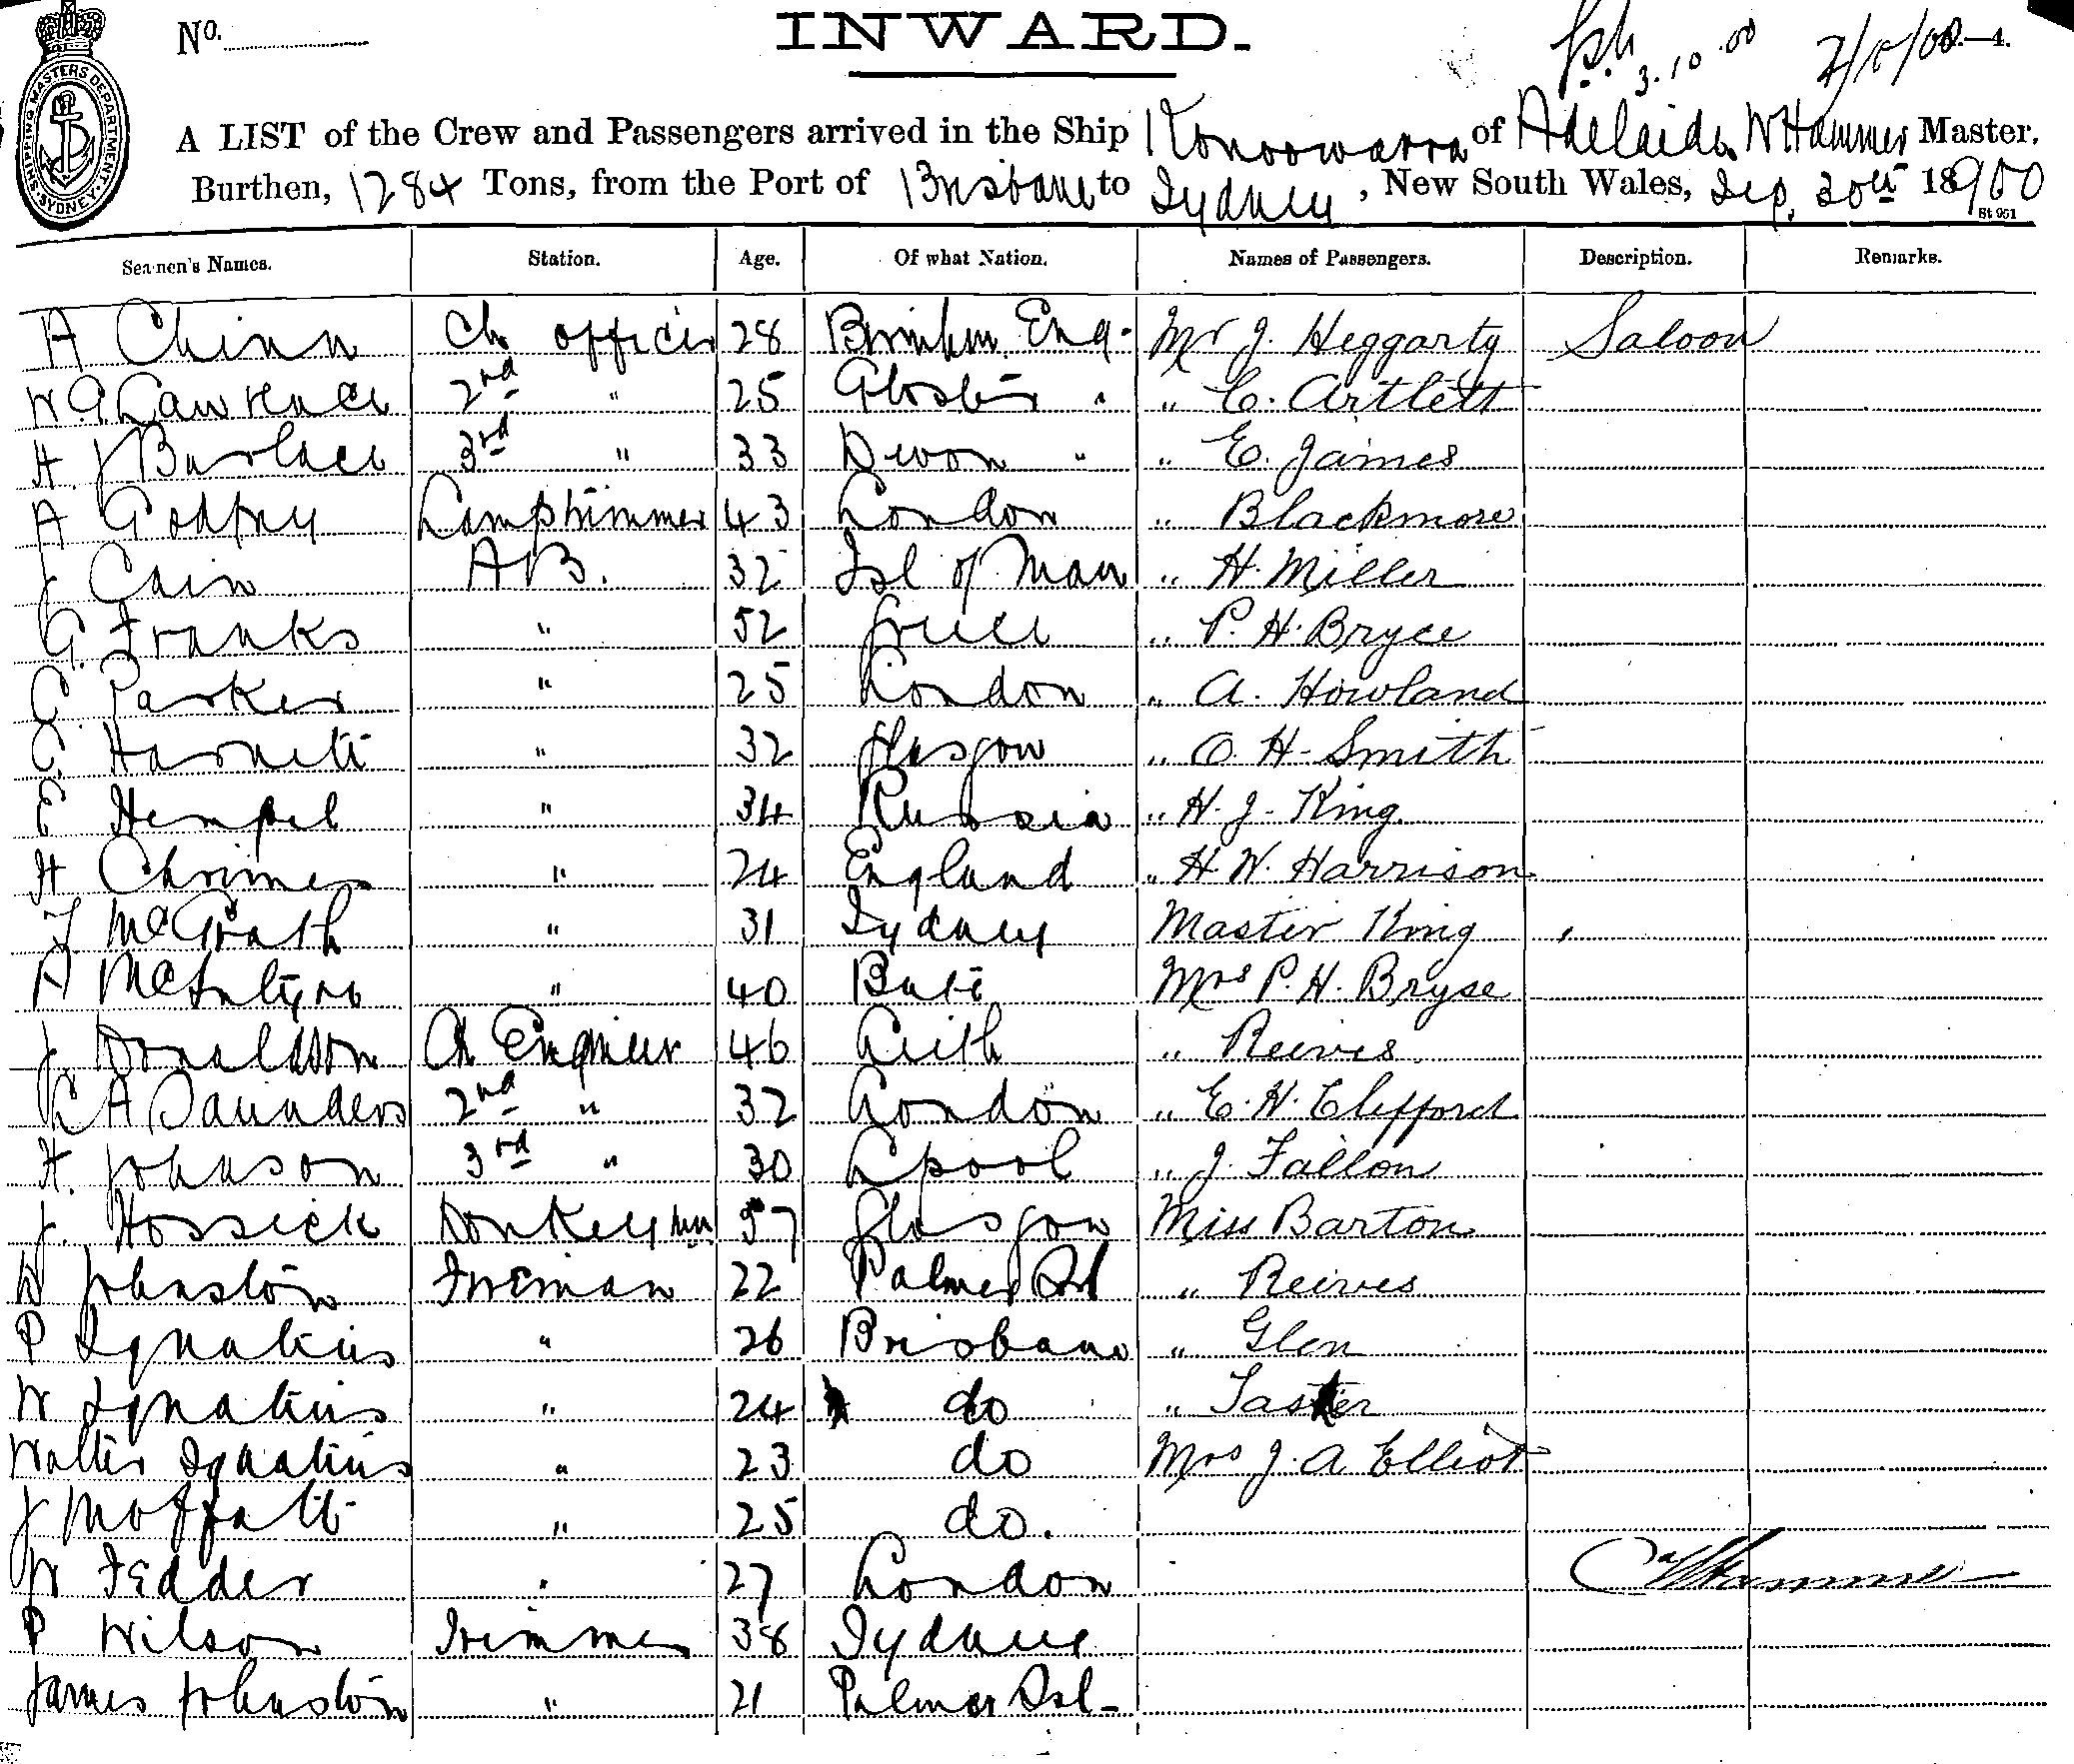 No.
INWARD.
3.10.00 2/10/00.—4.
SHIPPING MASTERS DEPARTMENT. SYDNEY.
A LIST of the Crew and Passengers arrived in the Ship Konoowarra of Adelaide, W Hammer Master,
Burthen, 1284 Tons, from the Port of Brisbane to Sydney, New South Wales, Sep. 30th 18900
St 951
Seamen's Names. Station. Age. Of what Nation. Names of Passengers. Description. Remarks.
A Chinn Ch officer 28 Eng. Mr J. Heggarty Saloon
W G. Lawrence 2nd " 25 Gloster " " C. Artlett
H. J Burlace 3rd " 33 Devon " " E. James
A Godfrey Lamptrimmer 43 London " Blackmore
J Cain AB. 32 Isl of Man " H. Miller
G. Franks " 52 " P. H. Bryce
C. Parker " 25 London " A. Howland
C. Harnett " 32 Glasgow " O. H. Smith
E Hempel " 34 Russia " H. J. King
H Chrimes " 24 England " H. W. Harrison
J McGrath " 31 Sydney Master King
A McIntyre " 40 Bute Mrs P. H. Bryse
J Donaldson Ch Engineer 46 Leith " Reeves
A Saunders 2nd " 32 London " E. H. Clifford
H. Johnson 3rd " 30 Lpool " J. Fallon
J. Hossick Donkeyman 57 Glasgow Miss Barton
W Johnston Fireman 22 Palmer Isl " Reeves
P Ignatius " 26 Brisbane " Glen
W Ignatius " 24 do " Taster
Walter Ignatius " 23 do Mrs J. A Elliot
J Moffatt " 25 do.
W Fedder " 27 London
W Hammer
P Wilson Trimmer 38 Sydney
James Johnston " 21 Palmer Isl-